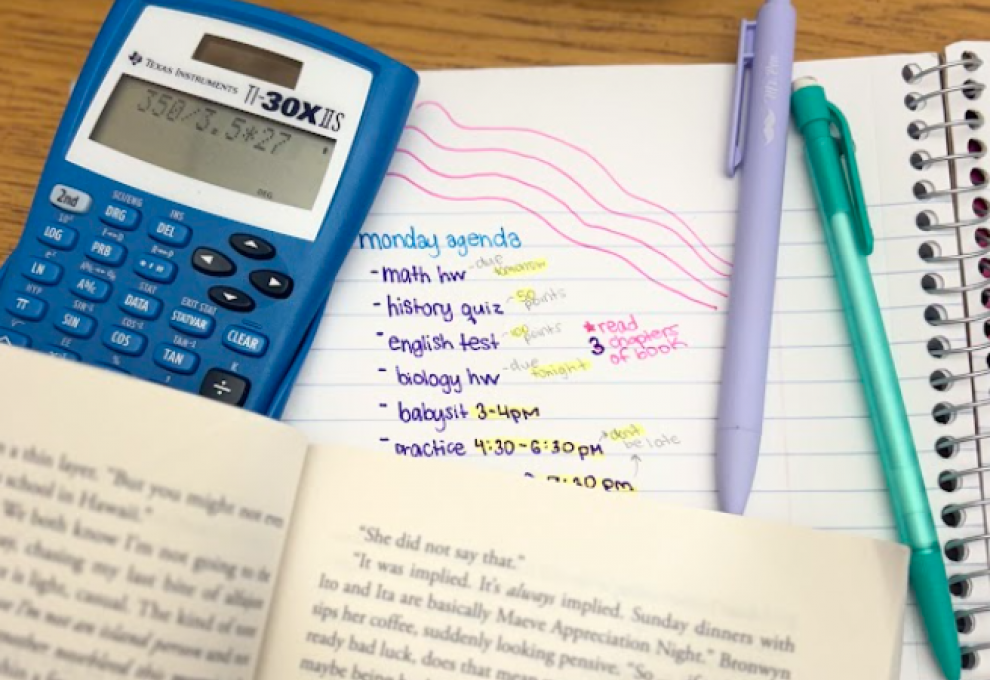 TEXAS INSTRUMENTS
TI-30X IIS
350/3.5*27
DEG
2nd
SCI/ENG
DRG
INS
DEL
LOG
PRB
LN
DATA
STAT
EXIT STAT
STATVAR
CLEAR
HYP
π
SIN
COS
TAN
÷
monday agenda
-math hw -due tomorrow
-history quiz -50 points
-english test -100 points
*read
3 chapters
of book
-biology hw -due tonight
-babysit 3-4pm
-practice 4:30-6:30pm *don't
be late
pm
a thin layer. "But you might not
school in Hawaii."
We both know I'm not going to
chasing my last bite of
is light, casual. The kind of
I'm not an island person and
"She did not say that."
"It was implied. It's always implied. Sunday dinners with
Ito and Ita are basically Maeve Appreciation Night." Bronwyn
sips her coffee, suddenly looking pensive. "So
ready bad luck, does that mean
maybe being